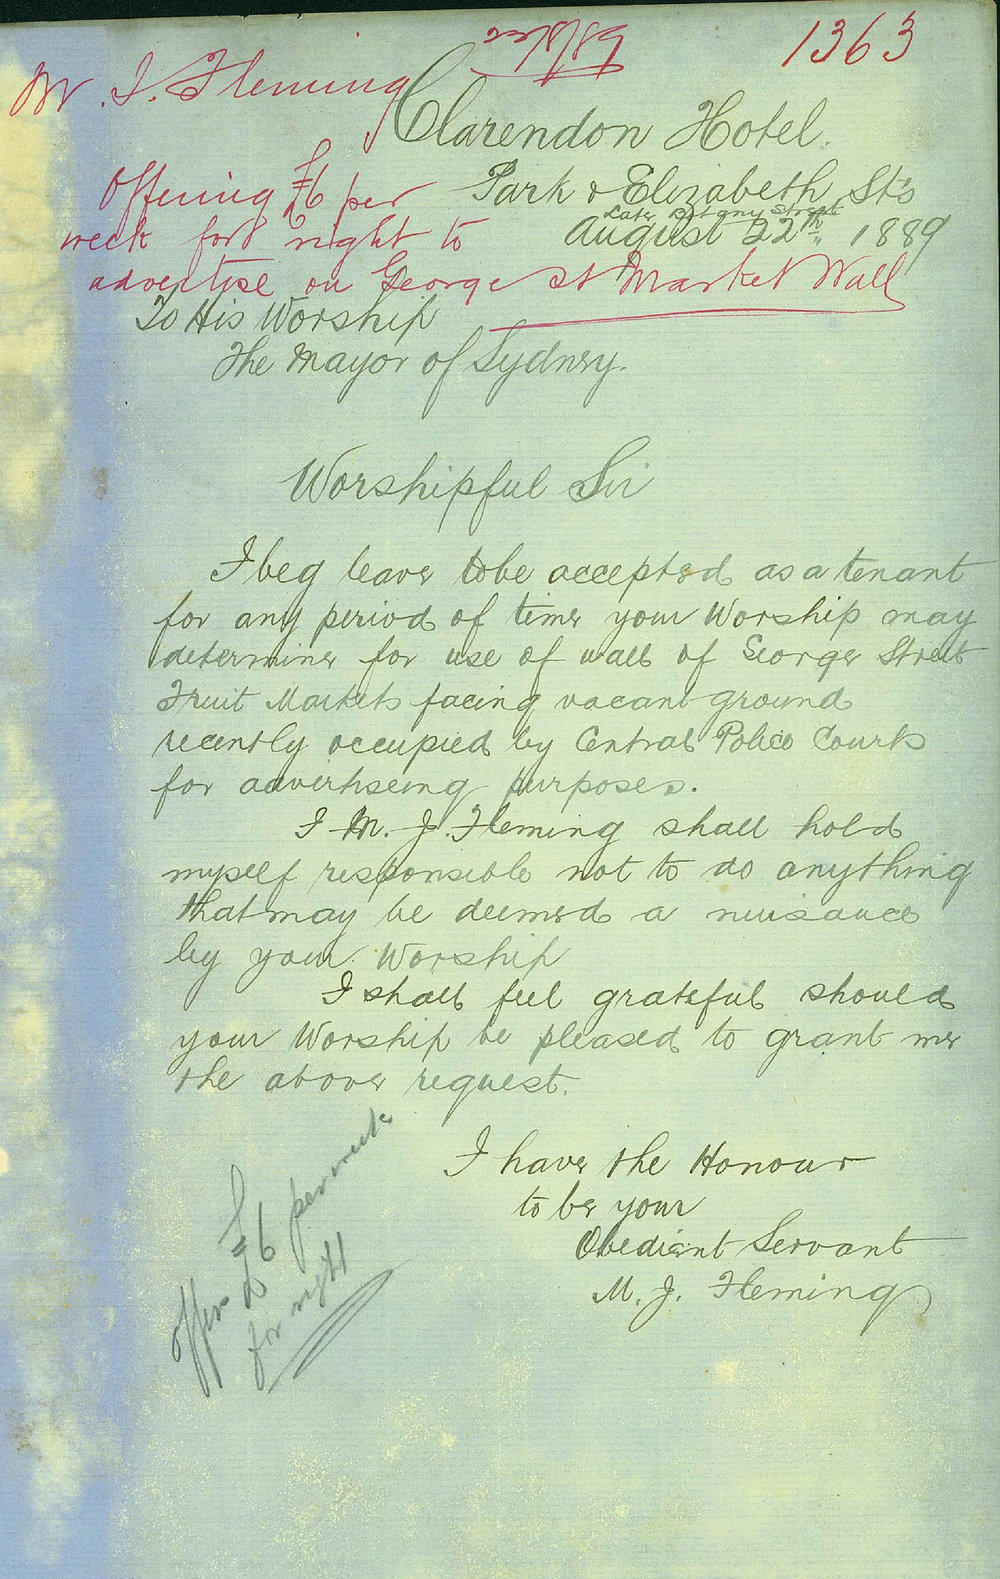 23/8/89
1363
M. J. Fleming
Clarendon Hotel.
Offering £6 per
Park & Elizabeth Sts
late Botany Street
week for right to
August 22th 1889
advertise on George St Market Wall
To His Worship
The Mayor of Sydney.
Worshipful Sir
I beg leave to be accepted as a tenant
for any period of time your Worship may
determine for use of wall of George Street
Fruit Markets facing vacant ground
recently occupied by Central Police Courts
for advertiseing purposes.
I M. J. Fleming shall hold
myself responsible not to do anything
that may be deemed a nuisance
by your Worship
I shall feel grateful should
your Worship be pleased to grant me
the above request.
I have the Honour
to be your
Obedient Servant
M. J. Fleming
offers £6 per week
for right